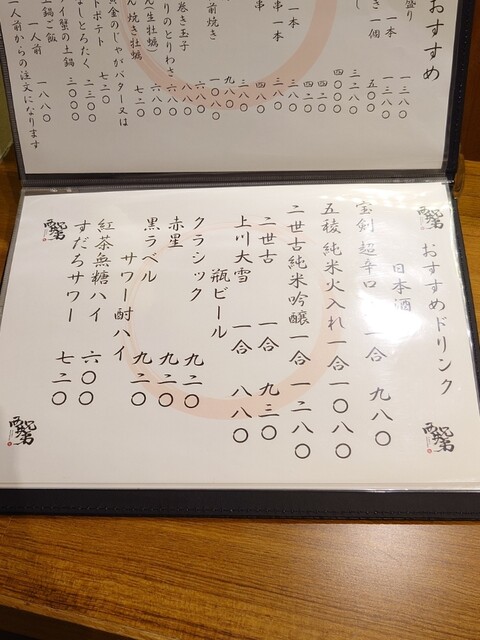 おすすめ
盛り
一本 一三八〇
き 一個 五〇〇
し 三二八〇
四〇〇
一本 四二〇
串 一本 三八〇
串 四八〇
前焼き 三八〇
巻き玉子 九八〇
りのとりわさ 一〇八〇
ん(生牡蠣 六八〇
ん 焼き牡蠣 八八〇
黄金のじゃがバター又は
トポテト 七二〇
なしとろたく 二三〇〇
イ蟹の土鍋 三〇〇〇
土鍋ご飯 一人前 一八八〇
二人前からの注文になります
おすすめドリンク
日本酒
宝剣 超辛口 一合 九八〇
五稜 純米火入れ 一合 一〇八〇
二世古純米吟醸 一合 一二八〇
二世古 一合 九三〇
上川大雪 一合 八八〇
瓶ビール
クラシック 九二〇
赤星 九二〇
黒ラベル 九二〇
サワー酎ハイ
紅茶無糖ハイ 六〇〇
すだちサワー 七二〇